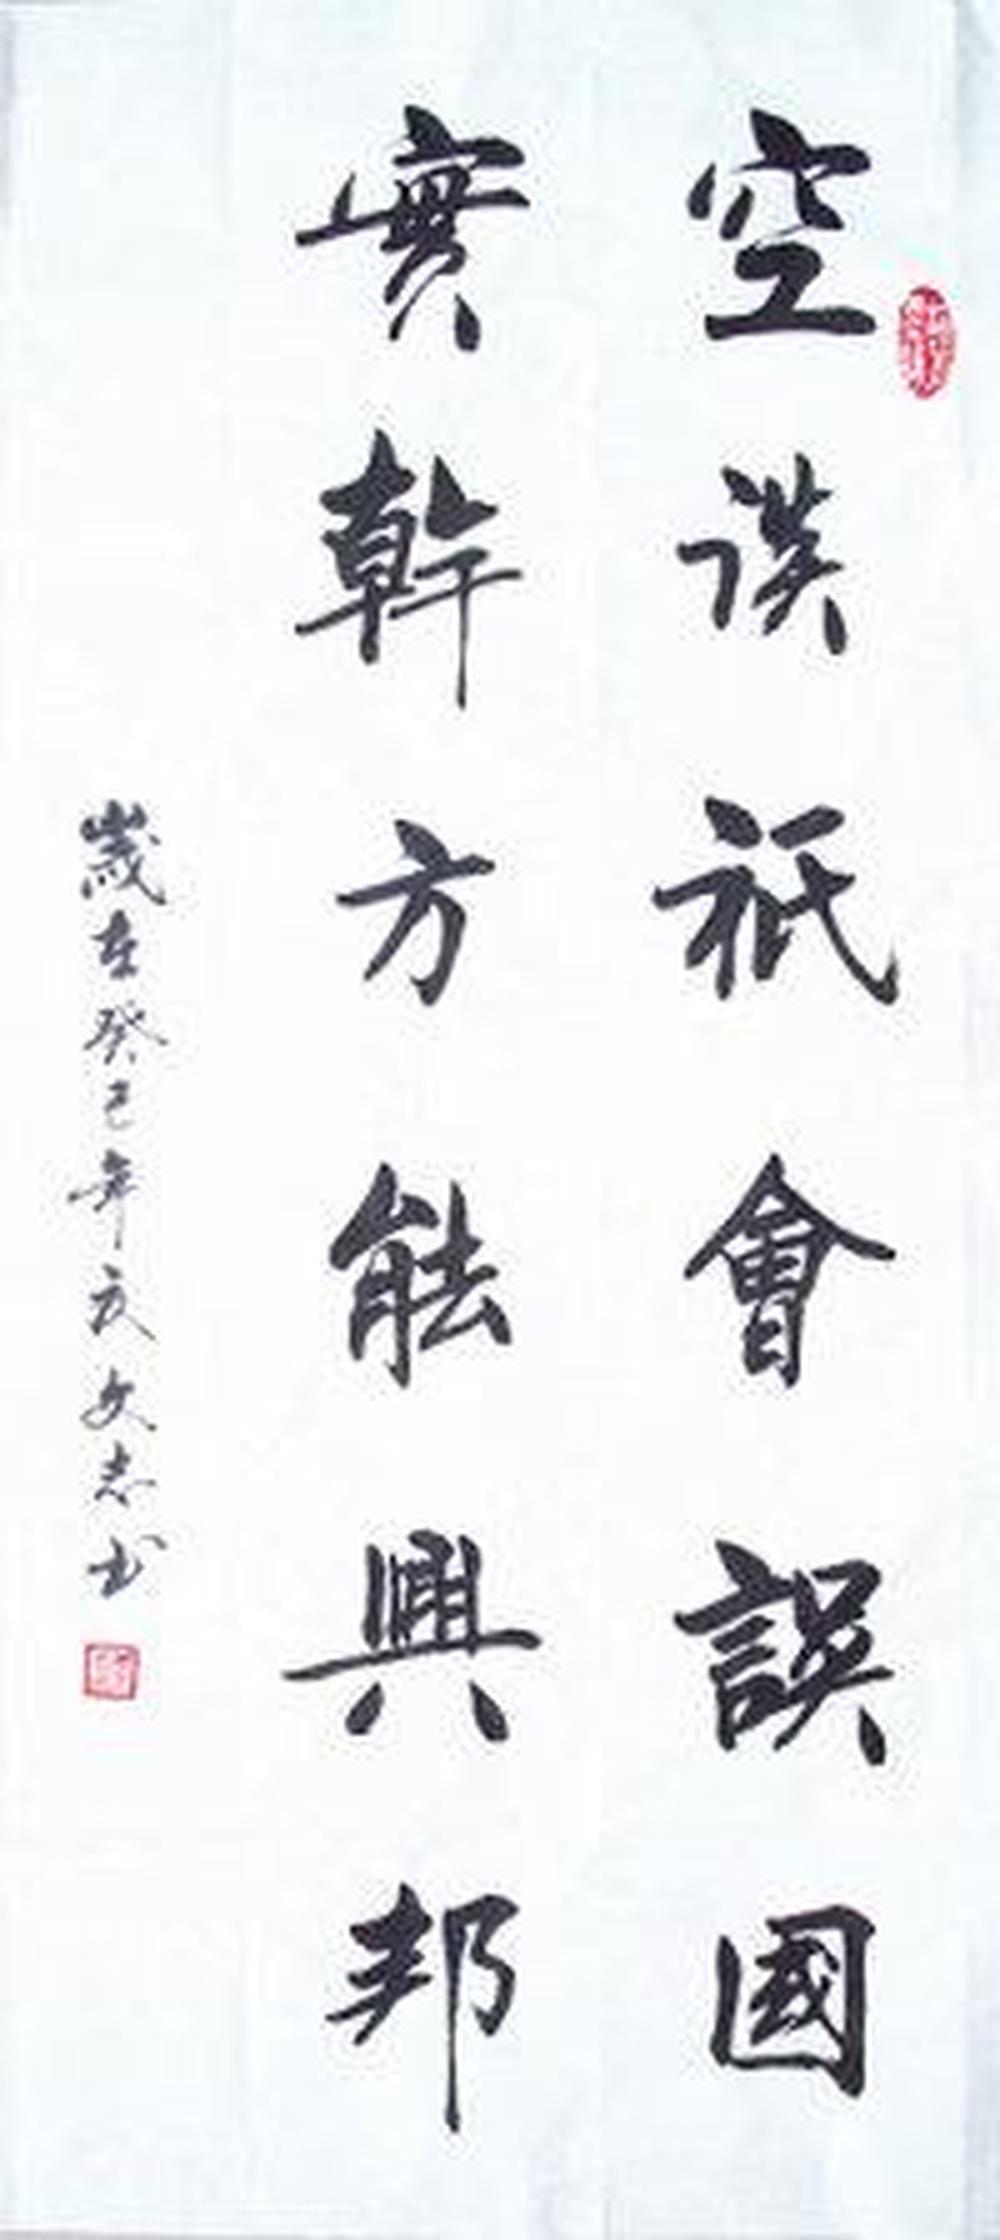 空談祇會誤國
實幹方能興邦
歲在癸巳年文志書